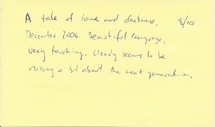 A tale of love and darkness, 8/10
December 2006. Beautiful language,
very touching. Clearly seems to be
missing a bit about the next generation.